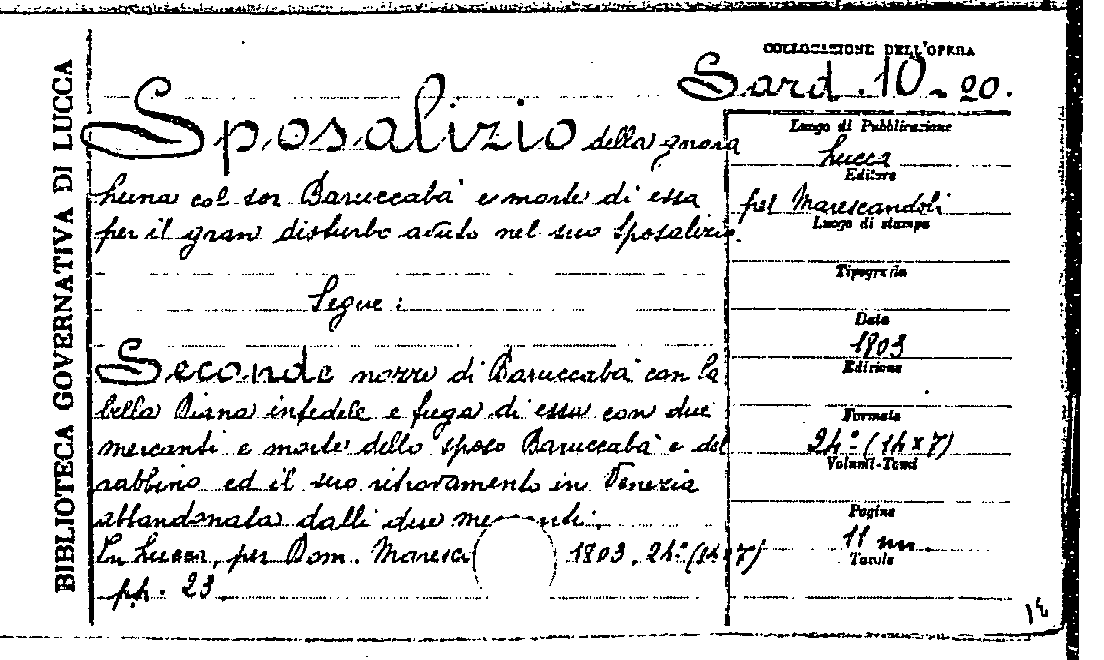 BIBLIOTECA GOVERNATIVA DI LUCCA
COLLOCAZIONE DELL'OPERA
Sard. 10 - 20.
Sposalizio della gnora
Luna col sor Baruccabà e morte di essa
per il gran disturbo avuto nel suo sposalizio.
Segue:
Seconde nozze di Baruccabà con la
bella Diana infedele e fuga di essa con due
mercanti e morte dello sposo Baruccabà e del
rabbino ed il suo ritrovamento in Venezia
abbandonata dalli due me nti.
In Lucca, per Dom. Maresca 1803. 24° (14×7)
pp. 23.
Luogo di Pubblicazione
Lucca
Editore
per Marescandoli
Luogo di stampa
Tipografia
Data
1803
Edizione
Formato
24° (14×7)
Volumi-Tomi
Pagine
11 nn.
Tavole
14